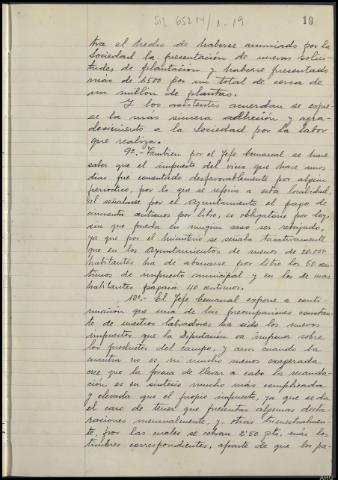 Sig 652 14/1-19
19
tra el hecho de haberse anunciado por la
Sociedad la presentacion de nuevas solici-
tudes de plantacion y haberse presentado
más de 2500 por un total de cerca de
un millon de plantas.
Y los asistentes acuerdan se expre-
se la más sincera adhesión y agra-
decimiento a la Sociedad por la labor
que realiza.
9º.- Tambien por el Jefe Comarcal se hace
saber que el impuesto del vino que hace unos
dias fue comentado desfavorablemente por algun
periodico, por lo que se refiere a esta localidad,
al señalarse por el Ayuntamiento el pago de
cuarenta centimos por litro, es obligatorio por ley,
sin que pueda en ningun caso ser rebajado,
ya que por el Ministerio se señala taxativamente
que en los ayuntamientos de menos de 20.000
habitantes ha de abonarse por litro los 50 cen-
timos de impuesto municipal y en los de mas
habitantes pagaria 40 centimos.
10º.- El Jefe Comarcal expone a conti-
nuación que una de las preocupaciones constan-
te de nuestros labradores ha sido los nuevos
impuestos que la Diputación va imponer sobre
los productos del campo, y aun cuando la
cuantia no es ni mucho menos exagerada
cree que la forma de llevar a cabo la recauda-
ción es en sintesis mucho más complicada
y elevada que el propio impuesto, ya que se da
el caso de tener que presentar algunas decla-
raciones mensualmente, y otras trimestralmen-
te, por las cuales se cobran 2'50 pts, más los
timbres correspondientes, aparte de que los pa-